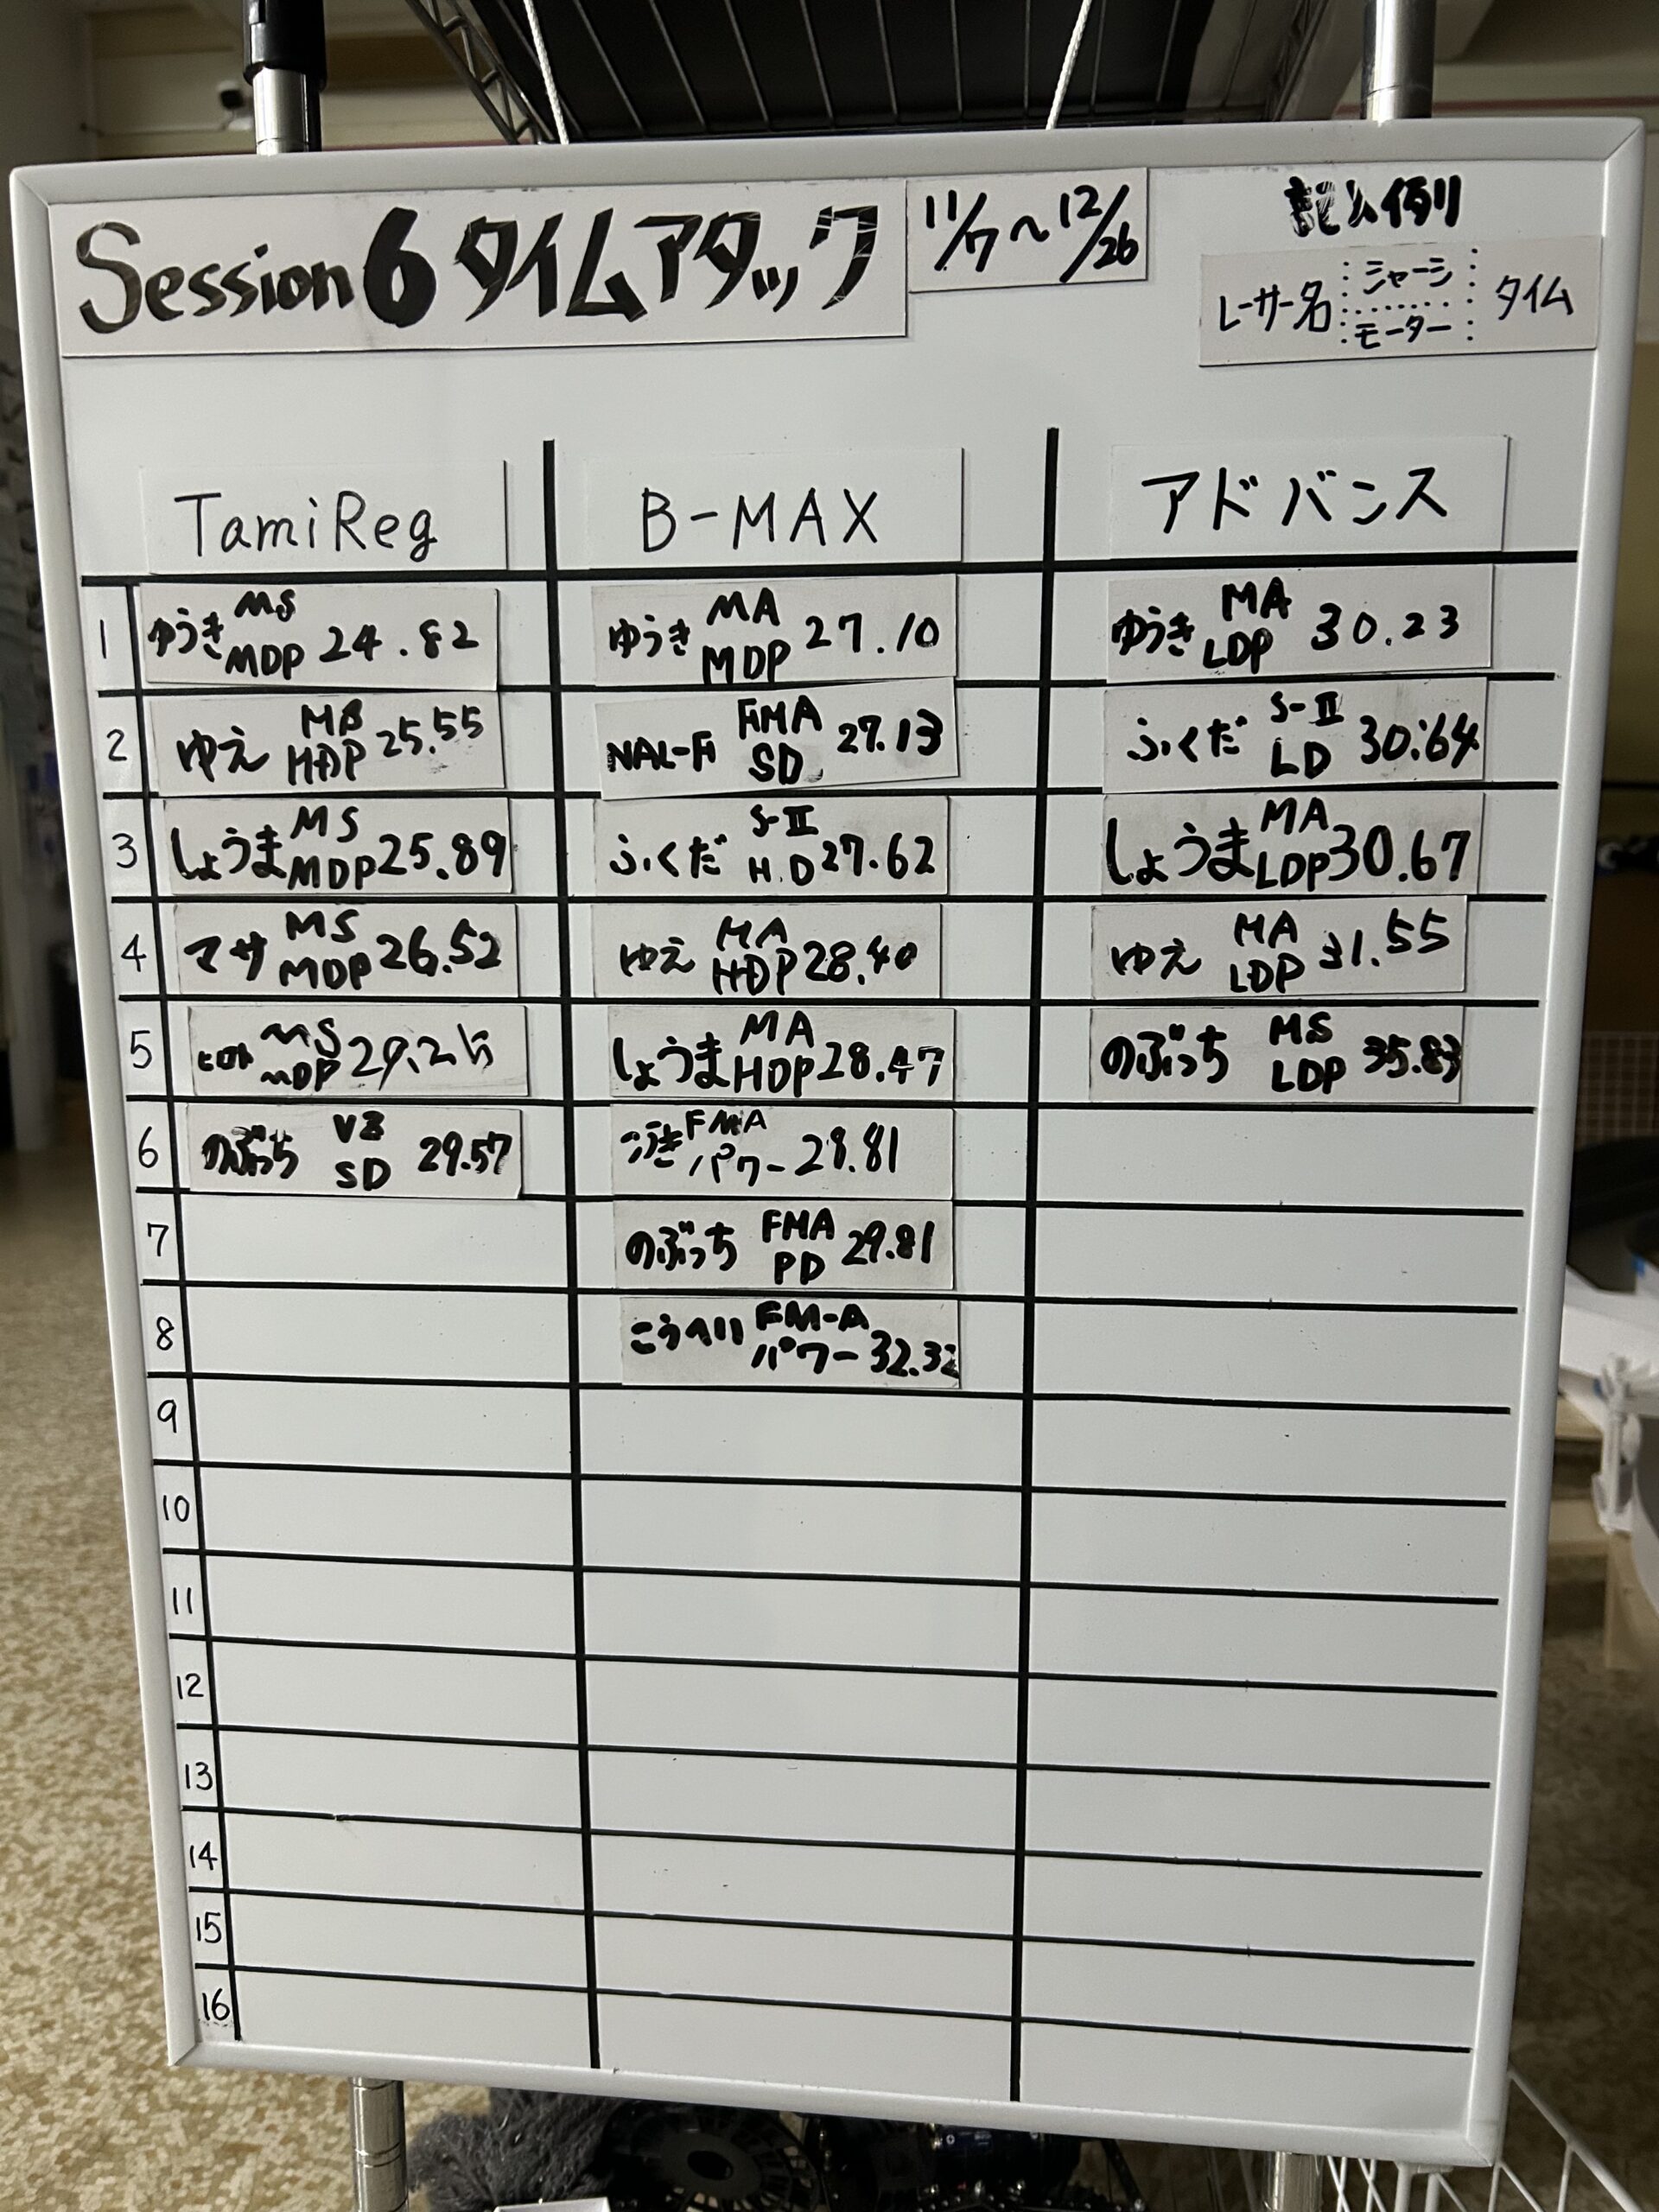 Session6 タイムアタック
11/7～12/26
記入例
レーサー名 シャーシ モーター タイム
TamiReg B-MAX アドバンス
1 ゆうき MS MDP 24.82 ゆうき MA MDP 27.10 ゆうき MA LDP 30.23
2 ゆえ MA HDP 25.55 NAL-Fi FMA SD 27.13 ふくだ S-II LD 30.64
3 しょうま MS MDP 25.89 ふくだ S-II H.D 27.62 しょうま MA LDP 30.67
4 マサ MS MDP 26.52 ゆえ MA HDP 28.40 ゆえ MA LDP 31.55
5 MS MDP 29.25 しょうま MA HDP 28.47 のぶっち MS LDP 35.83
6 のぶっち VZ SD 29.57 FMA パワー 28.81
7 のぶっち FMA PD 29.81
8 こうへい FM-A パワー 32.32
9
10
11
12
13
14
15
16